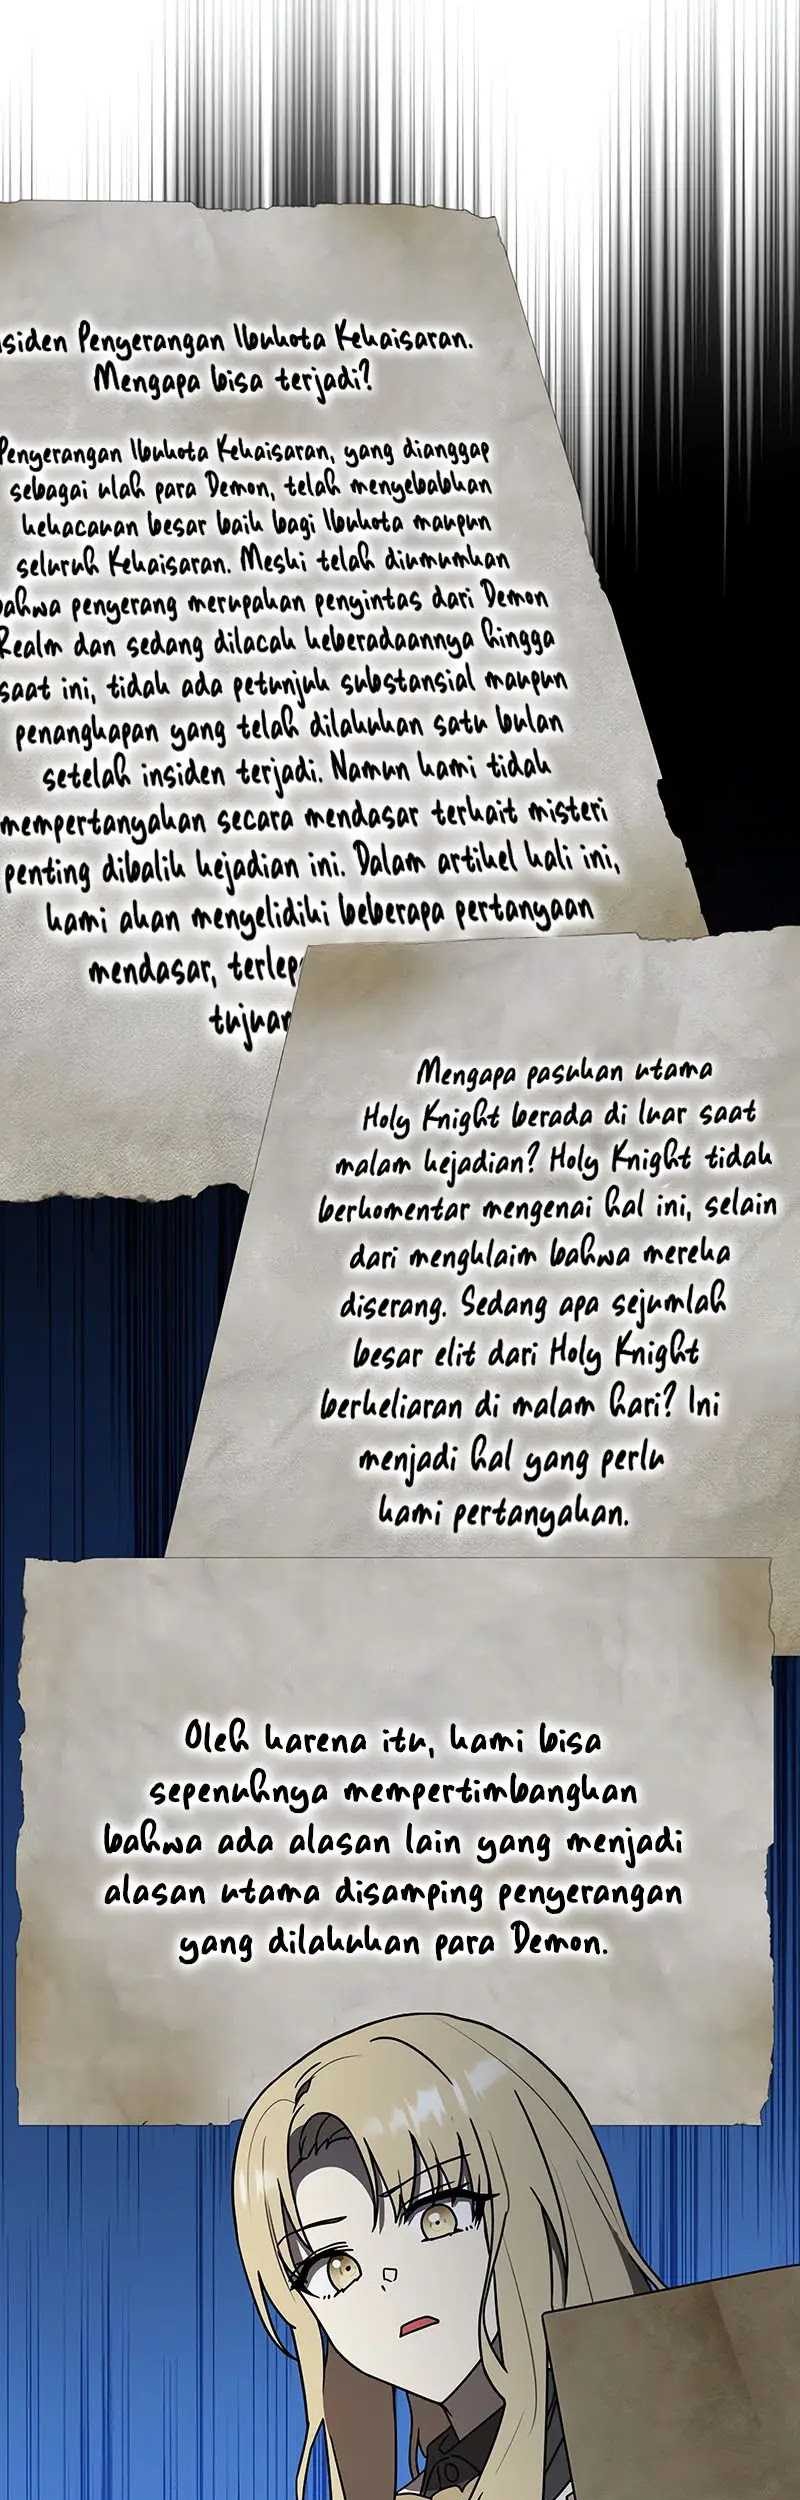 nsiden Penyerangan Ibukota Kekaisaran.
Mengapa bisa terjadi?
Penyerangan Ibukota Kekaisaran, yang dianggap
sebagai ulah para Demon, telah menyebabkan
kekacauan besar baik bagi Ibukota maupun
seluruh Kekaisaran. Meski telah diumumkan
bahwa penyerang merupakan penyintas dari Demon
Realm dan sedang dilacak keberadaannya hingga
saat ini, tidak ada petunjuk substansial maupun
penangkapan yang telah dilakukan satu bulan
setelah insiden terjadi. Namun kami tidak
mempertanyakan secara mendasar terkait misteri
penting dibalik kejadian ini. Dalam artikel kali ini,
kami akan menyelidiki beberapa pertanyaan
mendasar, terlep
tujuan
Mengapa pasukan utama
Holy Knight berada di luar saat
malam kejadian? Holy Knight tidak
berkomentar mengenai hal ini, selain
dari mengklaim bahwa mereka
diserang. Sedang apa sejumlah
besar elit dari Holy Knight
berkeliaran di malam hari? Ini
menjadi hal yang perlu
kami pertanyakan.
Oleh karena itu, kami bisa
sepenuhnya mempertimbangkan
bahwa ada alasan lain yang menjadi
alasan utama disamping penyerangan
yang dilakukan para Demon.